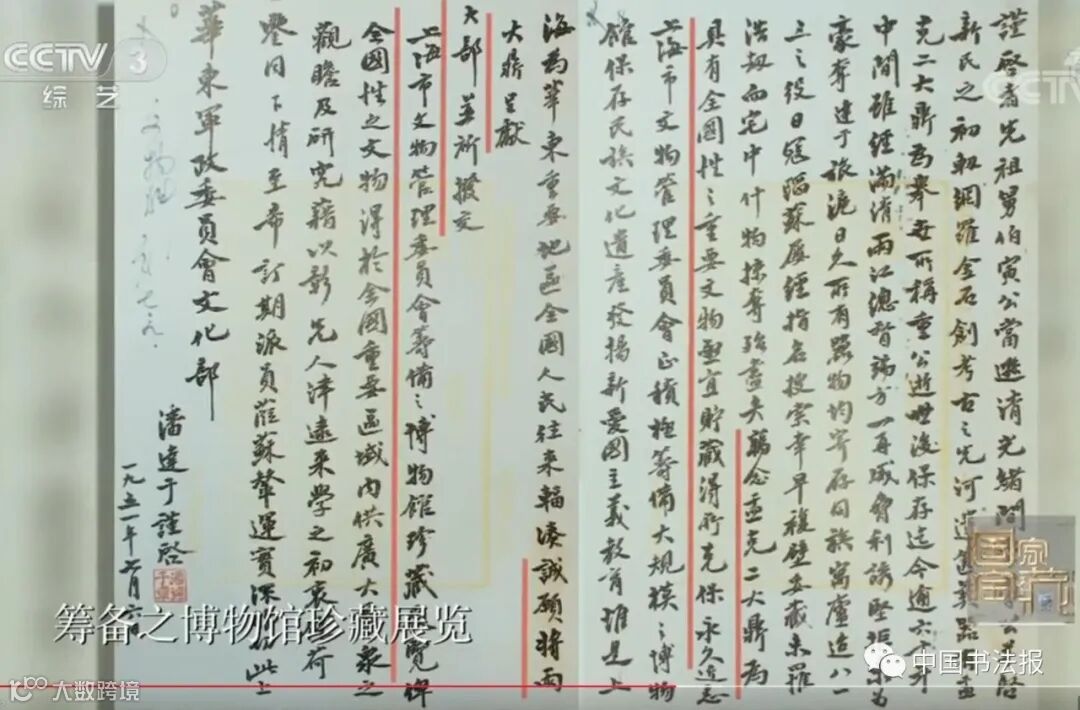 CCTV 3
综艺
CCTV
謹啓者先祖舅伯寅公當遜清光緒間
新民之初網羅金石創考古之先河
克二大鼎為舉世所稱重公逝世後保存迄今逾六十
中間雖經滿清兩江總督端方一再威脅利誘堅拒
豪奪達于旅滬日久所有器物均寄存同族寓廬迨八一
三之役日寇陷蘇屢經指名搜索幸早複壁妥藏未罹
浩劫而宅中什物掠奪殆盡矣竊念盂克二大鼎為
具有全國性之重要文物亟宜貯藏得所克保永久
上海市文物管理委員會正積極籌備大規模之博物
確保存民族文化遺產發揚新愛國主義教育惟是上
海為華東重要地區全國人民往來輻湊誠願將兩
大鼎呈獻
大部並祈撥交
上海市文物管理委員會籌備之博物館珍藏展覽俾
全國性之文物得於全國重要區域內供廣大群眾之
觀瞻及研究藉以彰先人津逮來學之初衷
鑒同下情至希訂期派員蒞蘇輦運實深
此上
華東軍政委員會文化部
潘達于謹啓
一九五一年七月六日
筹备之博物馆珍藏展览
国家宝库
中国书法报
大数跨境